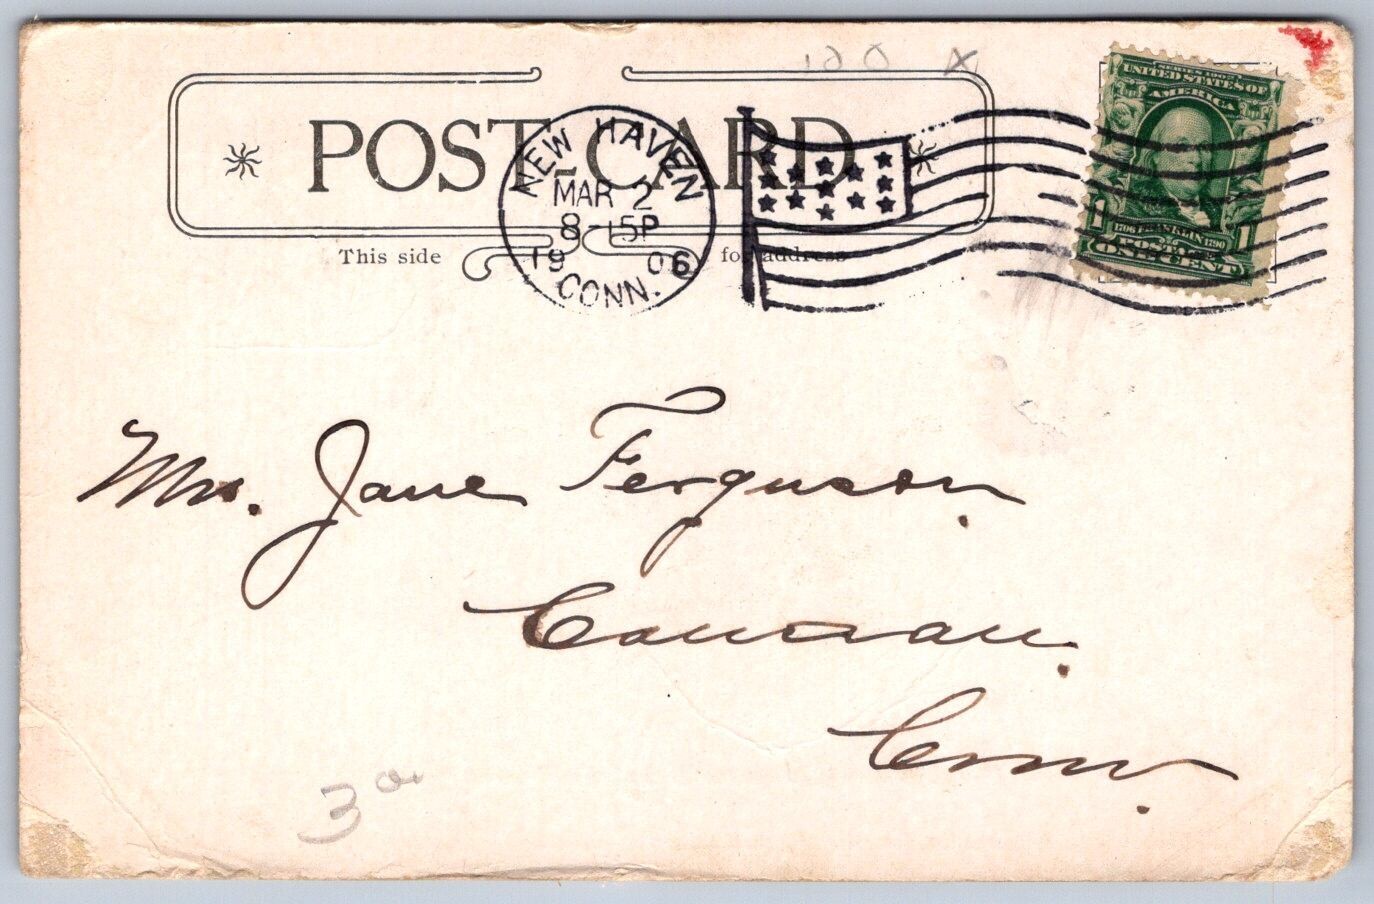 POST-CARD
This side for address
NEW HAVEN
MAR 2
8-15P
1906
CONN.
SERIES 1902
UNITED STATES OF
AMERICA
1 1
1706 FRANKLIN 1790
POSTAGE
ONE CENT
Mrs. Jane Ferguson.
Conn.
3 00